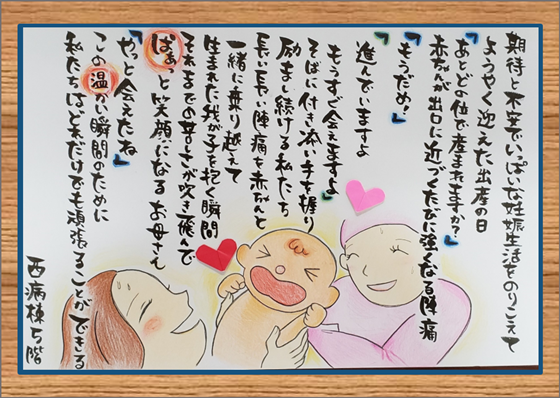 期待と不安でいっぱいな妊娠生活をのりこえて
ようやく迎えた出産の日
「あとどの位で産まれますか?」
赤ちゃんが出口に近づくたびに強くなる陣痛
「もうだめ!」
進んでいますよ
もうすぐ会えますよ」
そばに付き添い手を握り
励まし続ける私たち
長い長い陣痛を赤ちゃんと
一緒に乗り越えて
生まれた我が子を抱く瞬間
それまでの苦しさが吹き飛んで
ぱぁっと笑顔になるお母さん
「やっと会えたね」
この温かい瞬間のために
私たちはどれだけでも頑張ることができる
西病棟5階